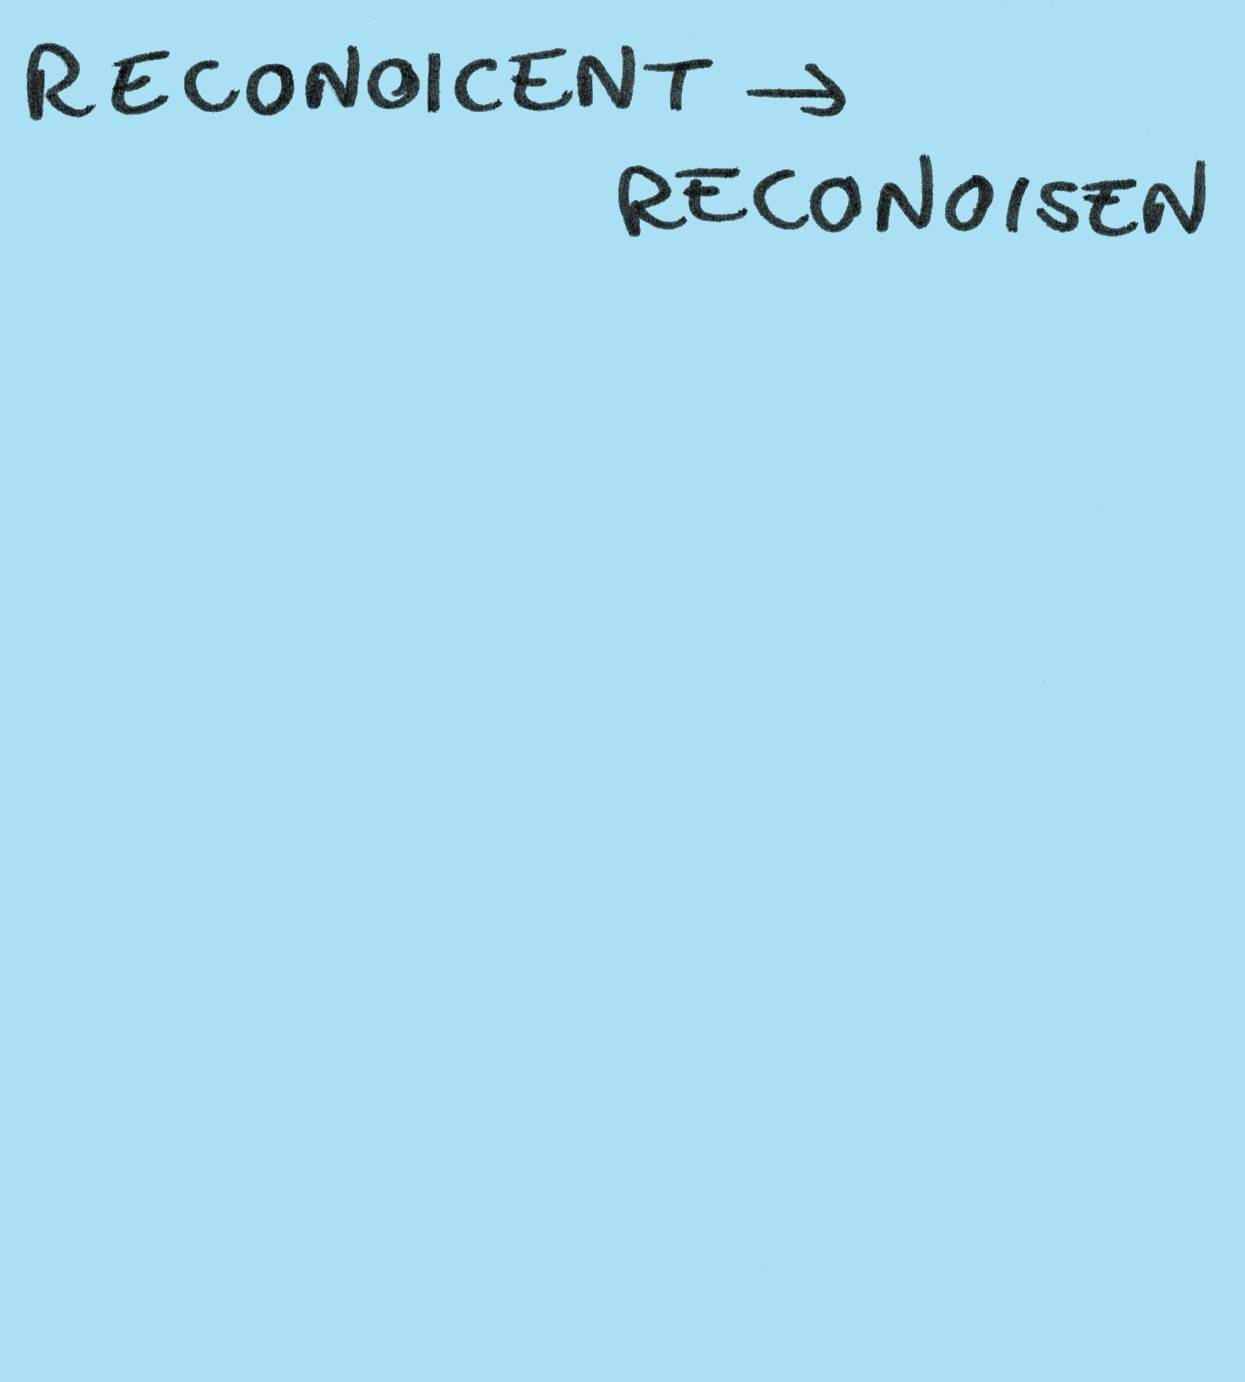 RECONOICENT →
RECONOISEN